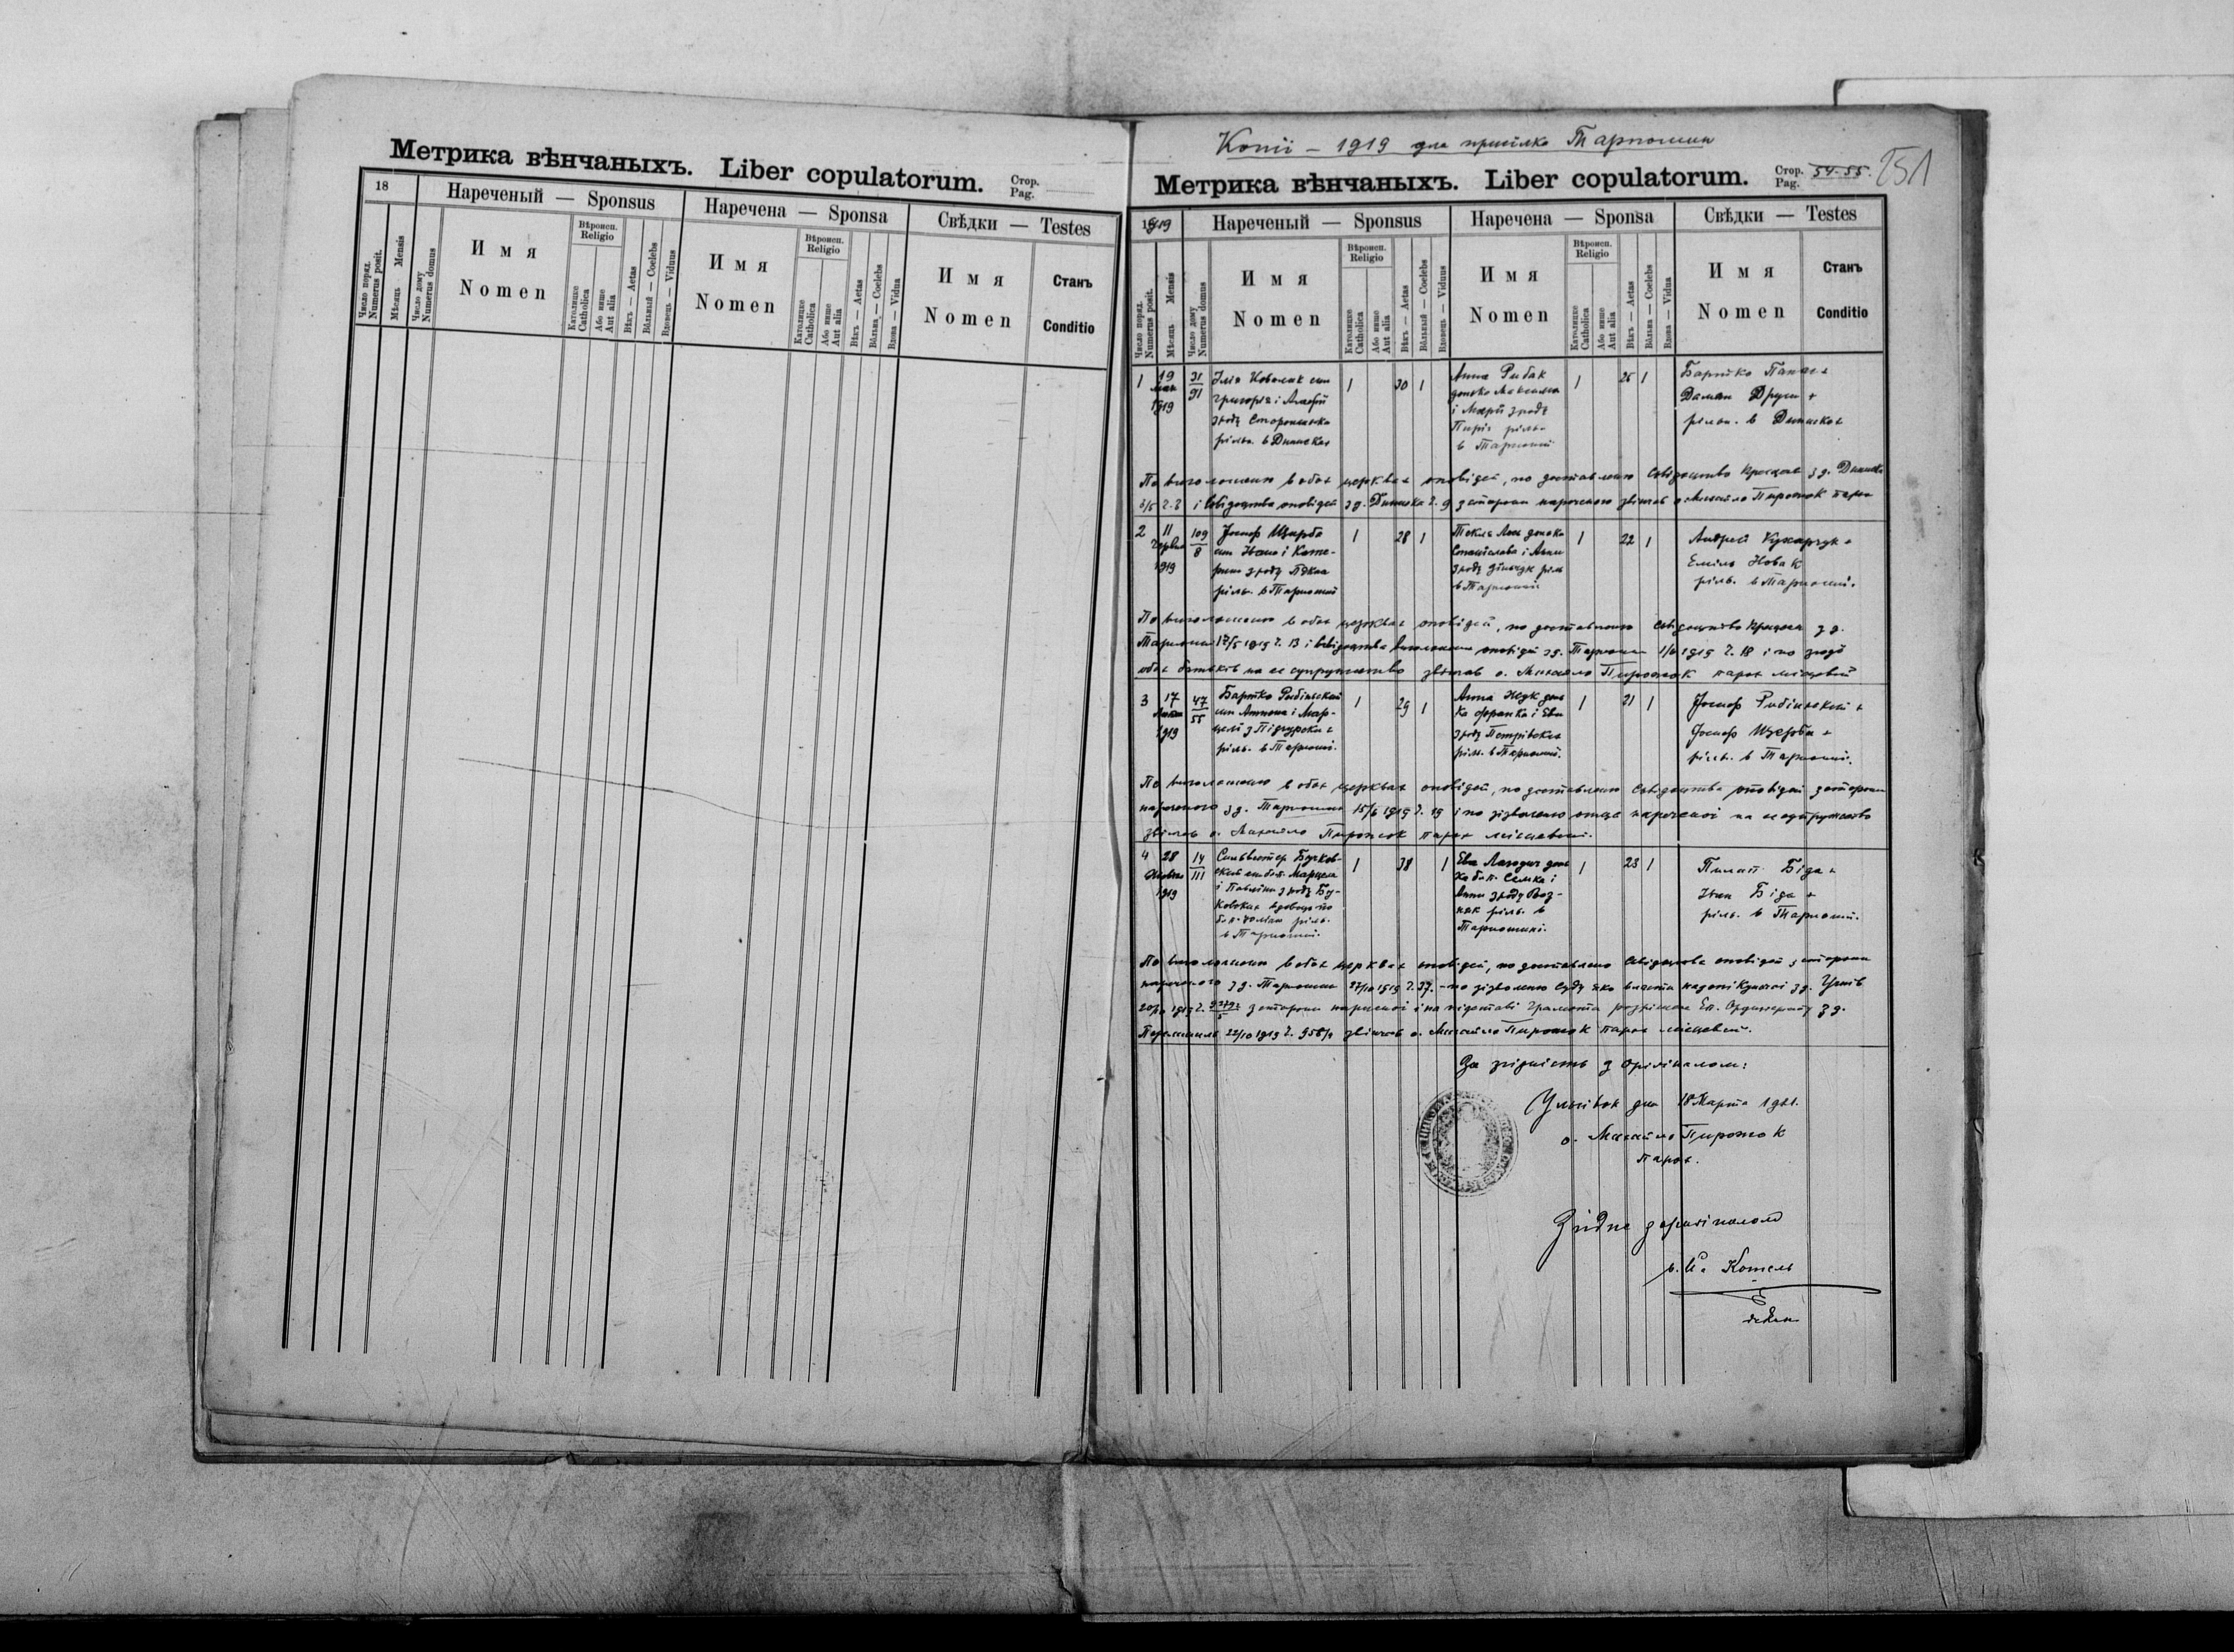 Метрика вѣнчаныхъ. Liber copulatorum. Стор. Pag.
18
Нареченый — Sponsus
Наречена — Sponsa
Свѣдки — Testes
Число поряд. Numerus posit.
Мѣсяць Mensis
Число дому Numerus domus
Имя Nomen
Вѣроисп. Religio
Католицке Catholica
Або инше Aut alia
Вѣкъ — Aetas
Вôльный — Coelebs
Вдовець — Viduus
Имя Nomen
Вѣроисп. Religio
Католицке Catholica
Або инше Aut alia
Вѣкъ — Aetas
Вôльна — Coelebs
Вдова — Vidua
Имя Nomen
Станъ Conditio
Копії – 1919 для присілка Тарношин
Метрика вѣнчаныхъ. Liber copulatorum. Стор. Pag. 54-55. 251
1919
Нареченый — Sponsus
Наречена — Sponsa
Свѣдки — Testes
Число поряд. Numerus posit.
Мѣсяць Mensis
Число дому Numerus domus
Имя Nomen
Вѣроисп. Religio
Католицке Catholica
Або инше Aut alia
Вѣкъ — Aetas
Вôльный — Coelebs
Вдовець — Viduus
Имя Nomen
Вѣроисп. Religio
Католицке Catholica
Або инше Aut alia
Вѣкъ — Aetas
Вôльна — Coelebs
Вдова — Vidua
Имя Nomen
Станъ Conditio
1
19
1919
31/91
Ілія Ковалик син
Григорія і
рільн. в Дининсках
1
30
1
Анна Рибак
донька Максима
і Марії з роду
ріль.
в Тарношині
1
25
1
Бартко
Дамян Друси
рільн. в Дининсках
По виголошеню в обох церквах оповідей, по доставленю свідоцтва
і свідоцтва оповідей з д. Дининска ч. 9 з сторони нареченого звінчав о. Михайло Пирожок парох
2
11
Червня
1919
109/8
Йосиф Щирба
син Івана і Кате-
рини з роду
ріль. в Тарношині
1
28
1
Текля донька
Станіслава і Анни
з роду ріль
в Тарношині
1
22
1
Андрей Кухарчук
Еміль Новак
ріль. в Тарношині.
По виголошеню в обох церквах оповідей, по доставленю свідоцтва з д.
Тарношин 17/5 1919 ч. 13 і свідоцтва виголошеня оповідей з д. Тарношин 1/6 1919 ч. 18 і по згоді
обох батьків на се супружество звінчав о. Михайло Пирожок парох місцевий
3
17
1919
47/55
Бартко Рибінский
син Антона і Мар-
целі з Підгурских
ріль. в Тарношині.
1
29
1
Анна Жук донь
ка Франка і Еви
з роду Петрівских
ріль. в Тарношині.
1
21
1
Йосиф Рибінский
Йосиф Щерба
ріль. в Тарношині.
По виголошеню в обох церквах оповідей, по доставленю свідоцтва оповідей з сторони
нареченого з д. Тарношин 15/6 1919 ч. 19 і по зізволеню отця нареченої на се супружество
звінчав о. Михайло Пирожок парох місцевий.
4
28
Жовтня
1919
14/111
Сильвестер Бучков-
ский син бл. п. Марцела
і Павліни з роду Бу-
ковских вдовець по
бл. п. ріль.
в Тарношині.
1
38
1
Ева донь
ка бл. п. Семка і
Анни з роду Воз-
няк ріль. в
Тарношині.
1
23
1
Пилат Біда
Іван Біда
ріль. в Тарношині.
По виголошеню в обох церквах оповідей, по доставленю свідоцтва оповідей з сторони
нареченого з д. Тарношин 27/10 1919 ч. 37. – по зізволеню суду яко власти надопікунчої з д. Угнів
з сторони нареченої і на підставі Еп. Ординаріяту з д.
Перемишль 22/10 1919 звінчав о. Михайло Пирожок парох місцевий.
За згідність з оригіналом:
Ульгівок дня 18 Марта 1921.
о. Михайло Пирожок
парох.
Згідне з оригіналом
Котель
декан